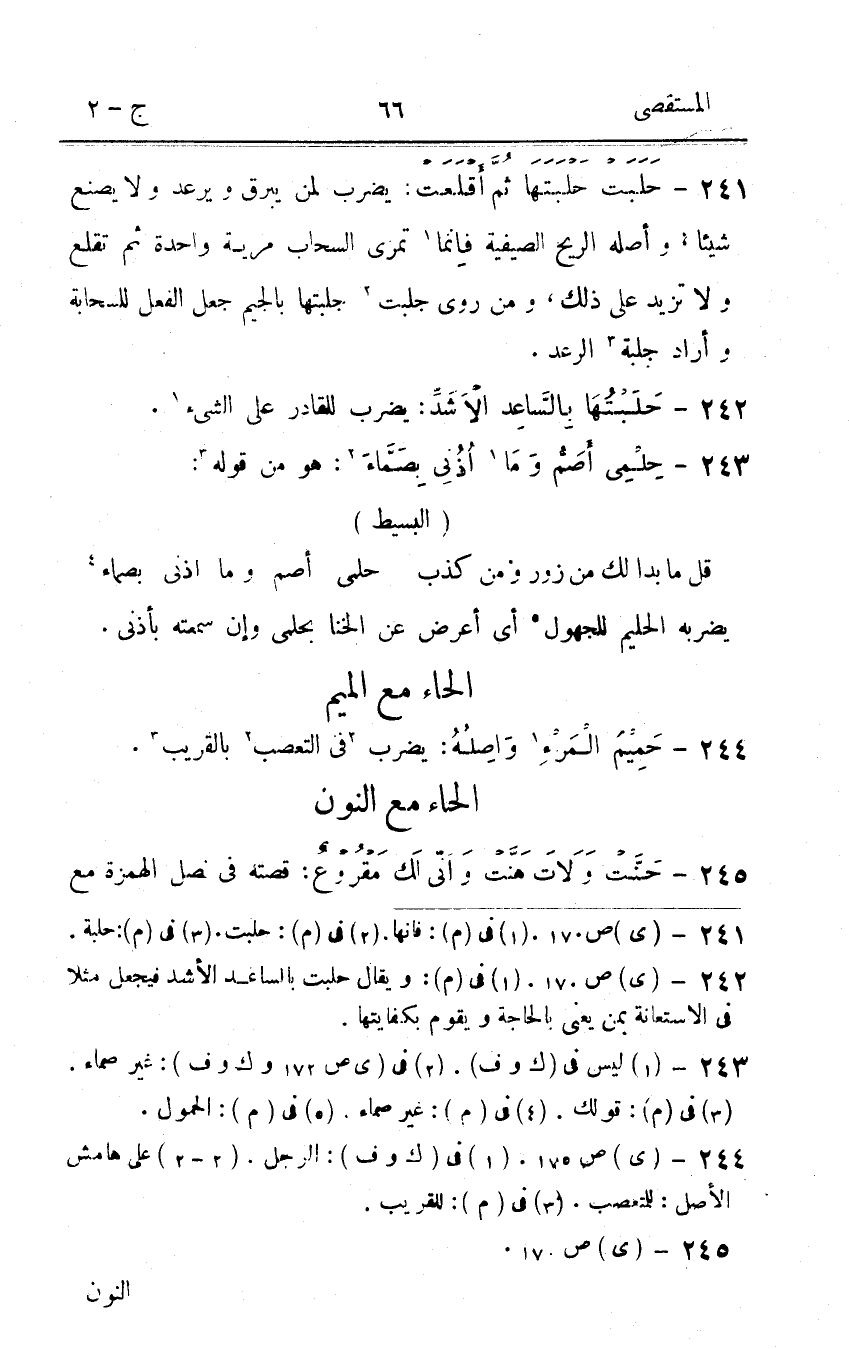 المستقصى ٦٦ ج - ٢
٢٤١ - حلبت حلبتها ثم أقلعت: يضرب لمن يبرق و يرعد و لا يصنع
شيئا؛ و أصله الريح الصيفية فإنما¹ تمرى السحاب مرية واحدة ثم تقلع
و لا تزيد على ذلك، و من روى جلبت² جلبتها بالجيم جعل الفعل للسحابة
و أراد جلبة³ الرعد.
٢٤٢ - حَلَبْتُهَا بِالسَّاعِدِ الْأَشَدِّ: يضرب للقادر على الشىء¹.
٢٤٣ - حِلْمِى أَصَمُّ وَ مَا¹ أُذُنِى بِصَمَّاءَ²: هو من قوله³:
( البسيط )
قل ما بدا لك من زور ومن كذب حلمى أصم و ما اذنى بصماء⁴
يضربه الحليم للجهول⁵ أى أعرض عن الخنا بحلمى وإن سمعته بأذنى.
الحاء مع الميم
٢٤٤ - حَمِيْمُ الْمَرْءِ¹ وَاصِلُهُ: يضرب ²فى التعصب² بالقريب³.
الحاء مع النون
٢٤٥ - حَنَّتْ وَلَاتَ هَنَّتْ وَأَنَّى لَكِ مَقْرُوعٌ: قصته فى فصل الهمزة مع
٢٤١ - (ى) ص ١٧٠. (١) فى (م): فانها. (٢) فى (م): حلبت. (٣) فى (م): حلبة.
٢٤٢ - (ى) ص ١٧٠. (١) فى (م): و يقال حلبت بالساعد الأشد فيجعل مثلا
فى الاستعانة بمن يعنى بالحاجة و يقوم بكفايتها.
٢٤٣ - (١) ليس فى (ك و ف). (٢) فى (ى ص ١٧٢ و ك و ف): غير صماء.
(٣) فى (م): قولك. (٤) فى (م): غير صماء. (٥) فى (م): الحمول.
٢٤٤ - (ى) ص ١٧٥. (١) فى (ك و ف): الرجل. (٢-٢) على هامش
الأصل: للتعصب. (٣) فى (م): للقريب.
٢٤٥ - (ى) ص ١٧٠.
النون